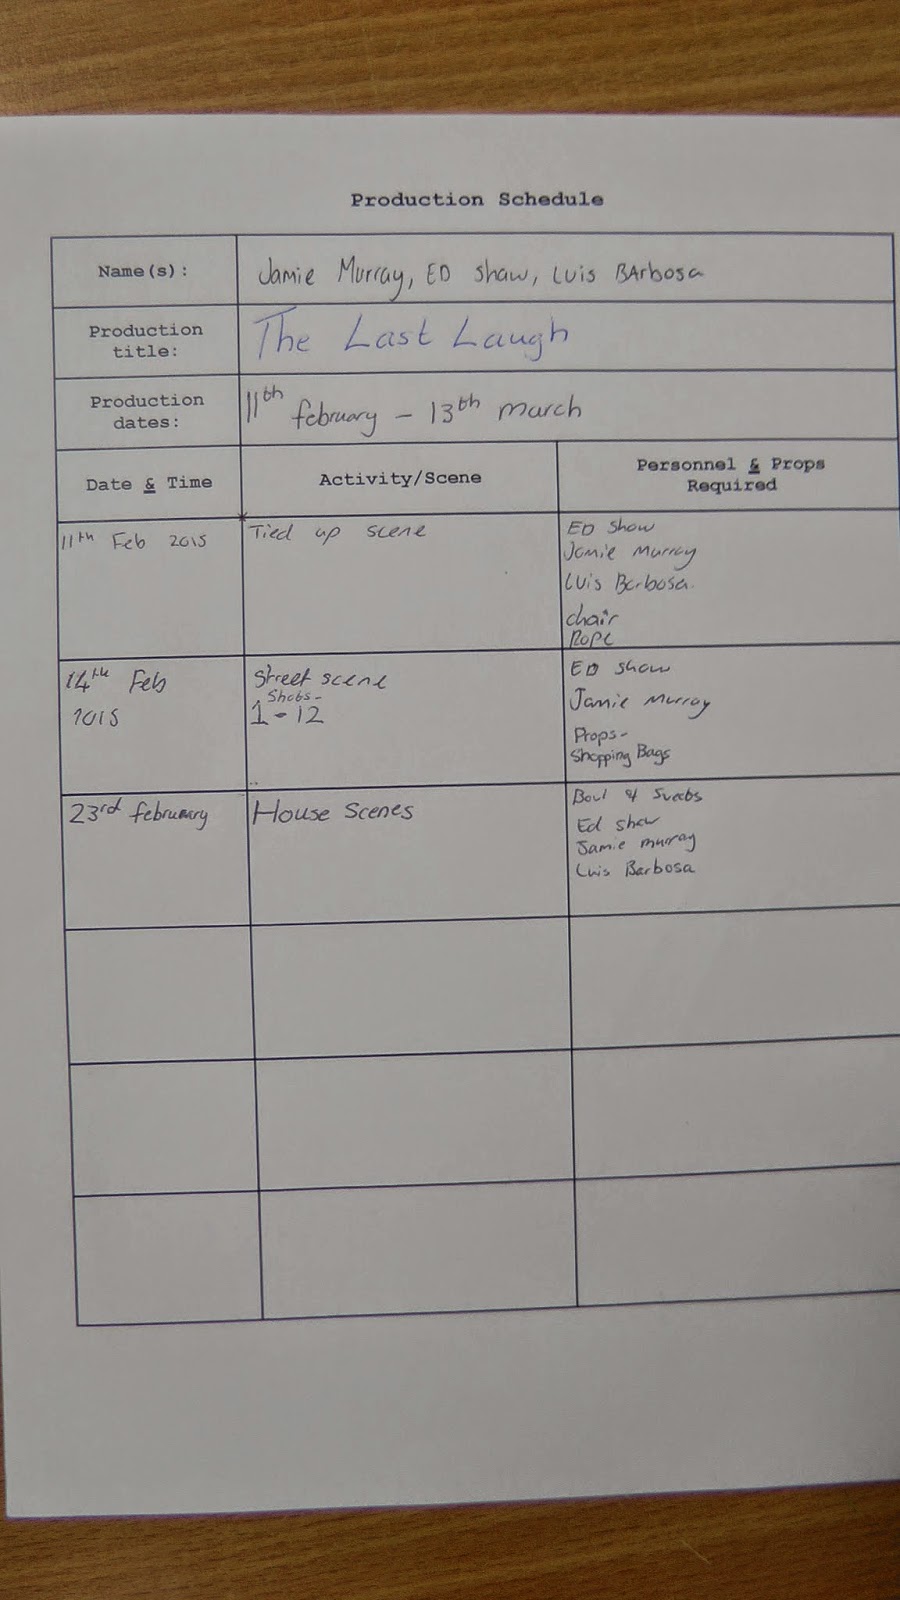 Production Schedule
Name(s):
Jamie Murray, ED Shaw, Luis BArbosa
Production
title:
The Last Laugh
Production
dates:
11th february - 13th march
Date & Time
Activity/Scene
Personnel & Props
Required
11th Feb 2015
Tied up scene
ED Shaw
Jamie Murray
LUis Barbosa
chair
Rope
14th Feb
2015
Street scene
Shots-
1-12
ED Shaw
Jamie Murray
Props-
Shopping Bags
23rd february
House Scenes
Bowl of Sweets
Ed Shaw
Jamie murray
Luis Barbosa